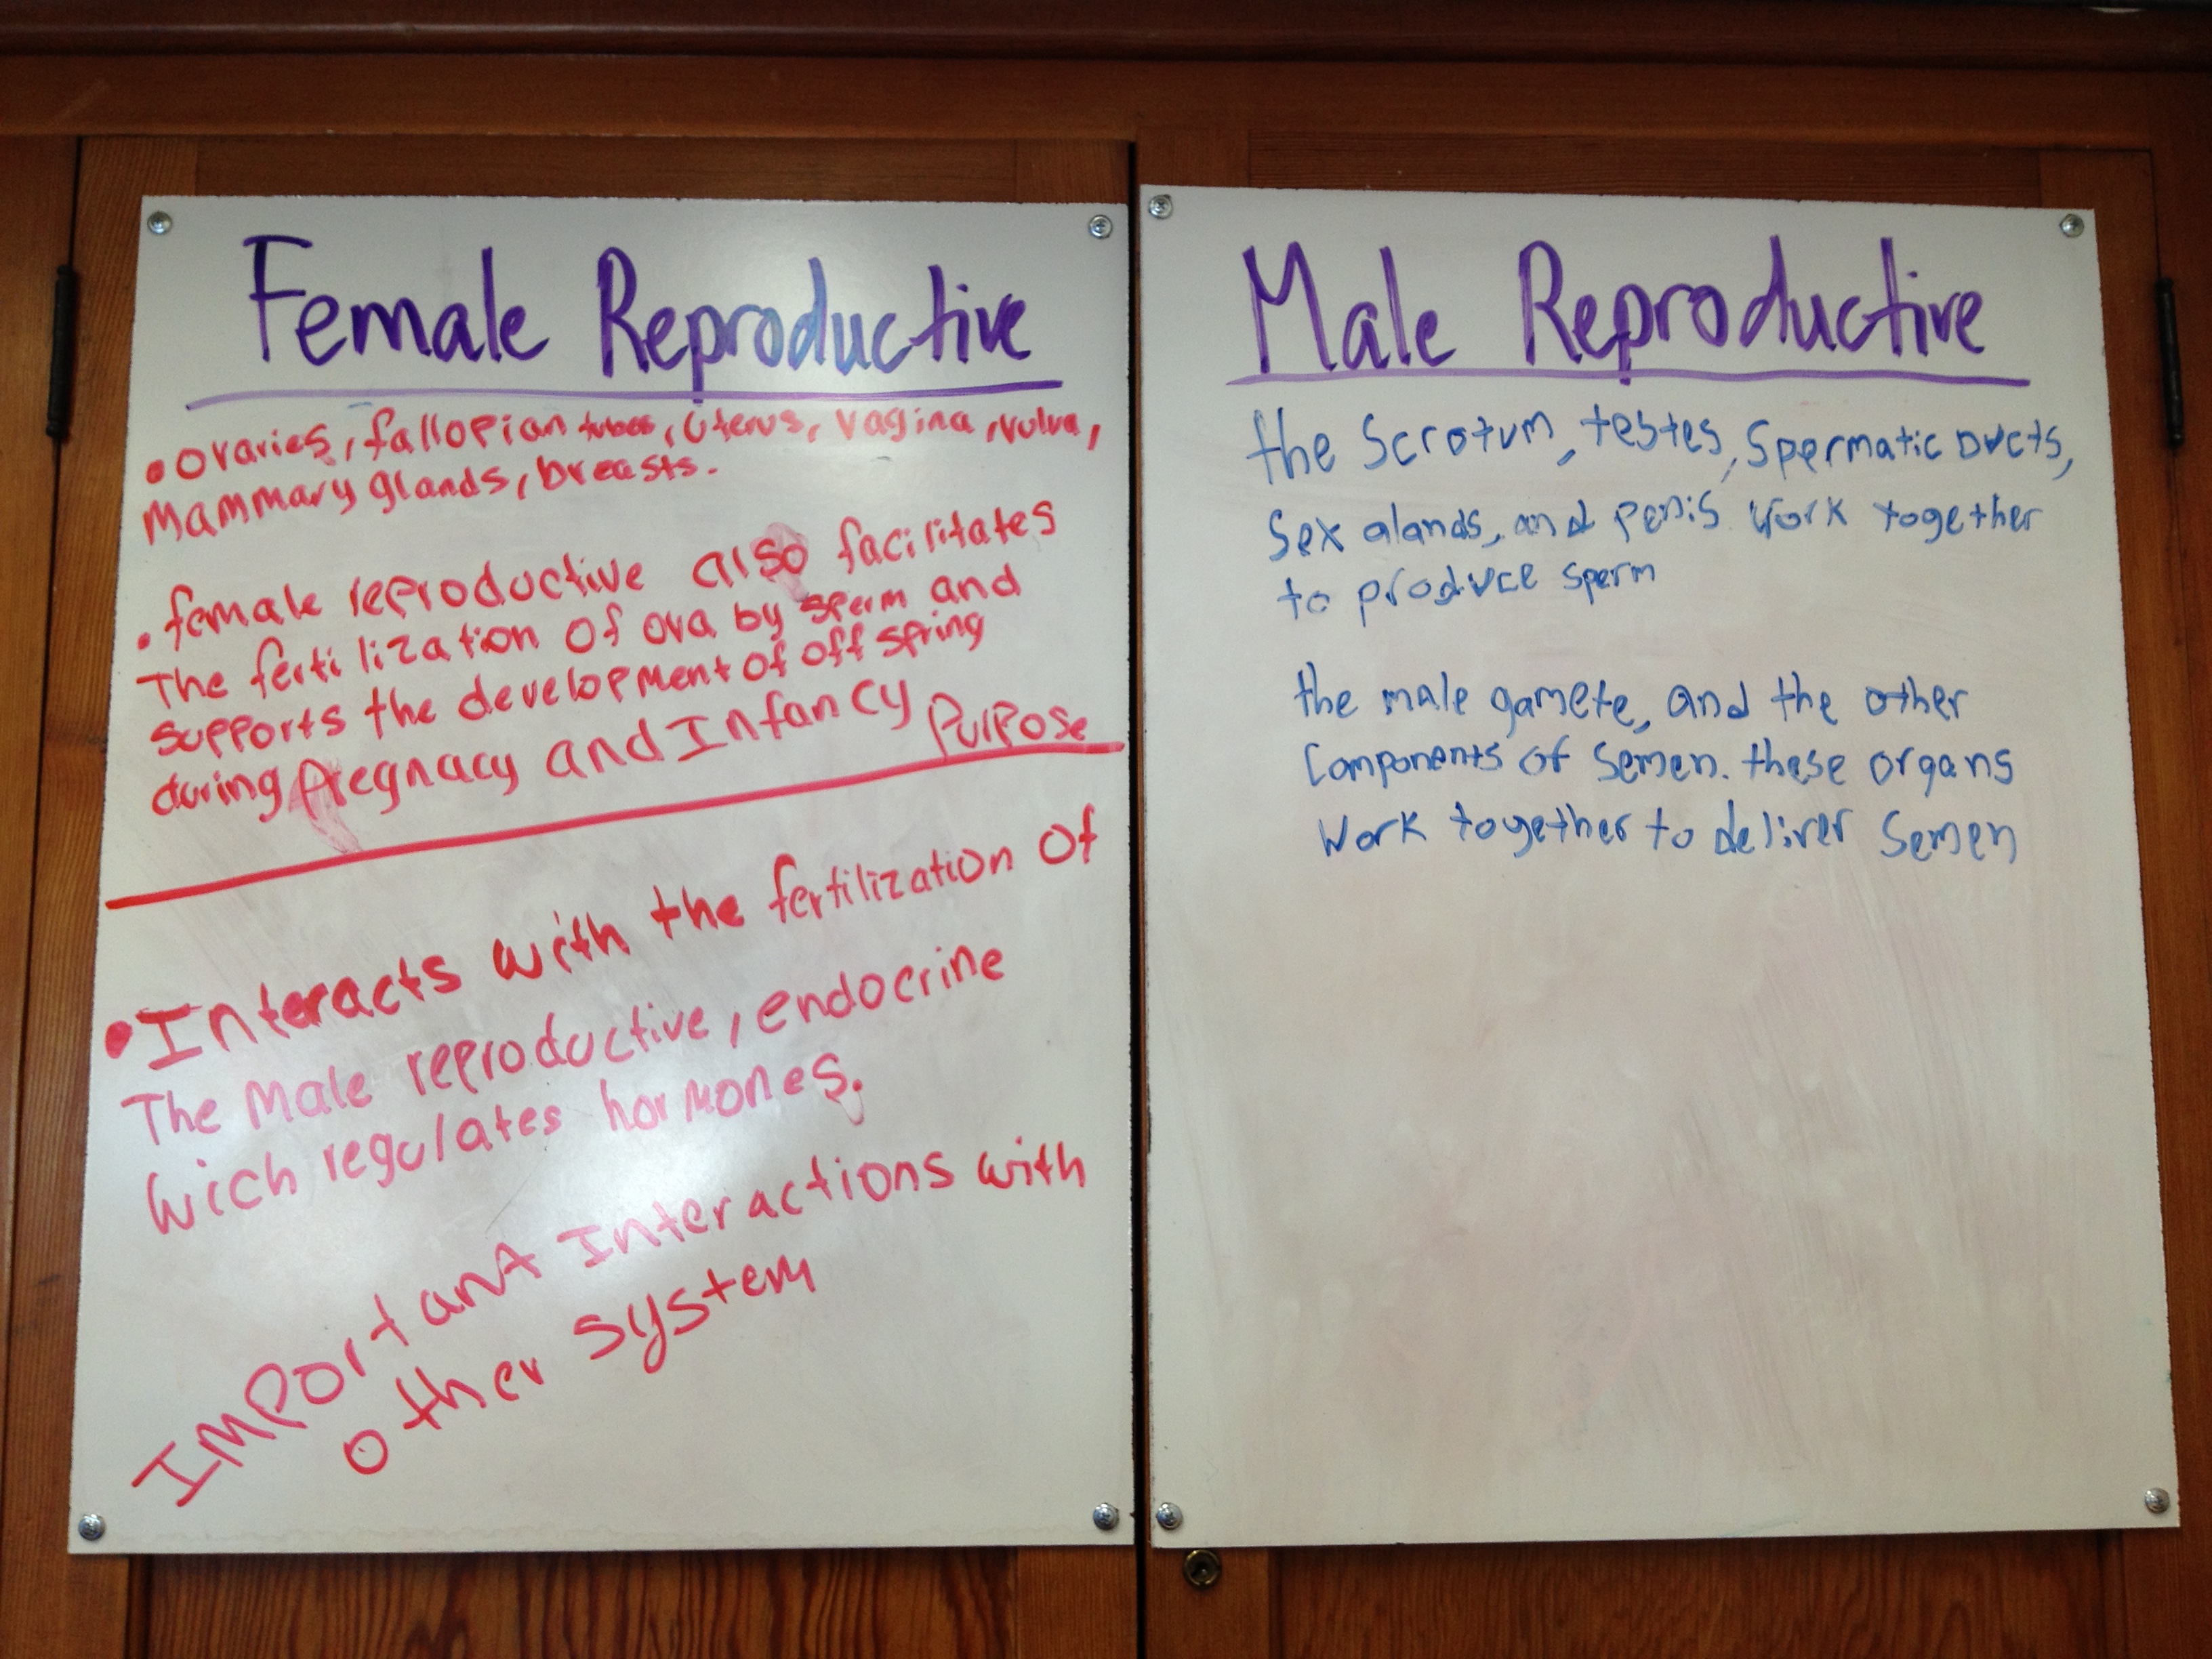 Female Reproductive
• Ovaries, fallopian tubes, Uterus, vagina, vulva,
Mammary glands, breasts.
• female reproductive also facilitates
The fertilization Of ova by sperm and
supports the development of off spring
during Pregnacy and Infancy Purpose
• Interacts with the fertilization Of
The Male reproductive, endocrine
wich regulates hormones.
Important Interactions with
other system
Male Reproductive
the Scrotum, testes, Spermatic Ducts,
Sex alands, and penis work together
to produce sperm
the male gamete, and the other
Components of Semen. these organs
Work together to deliver Semen